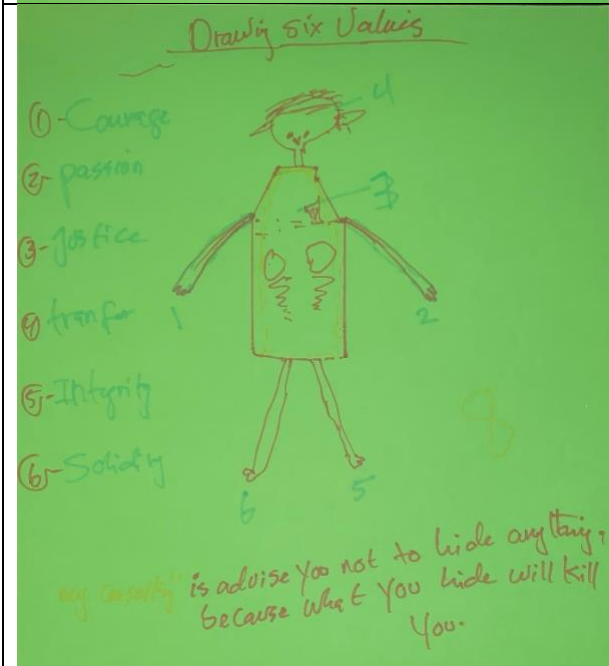 Drawing six Values
①-Courage
②-passion
③-Jostice
④ tranfer
⑤-Integrity
⑥-Solidity
4
3
1
2
6
5
8
my
is advise you not to hide any thing,
because what you hide will kill
you.